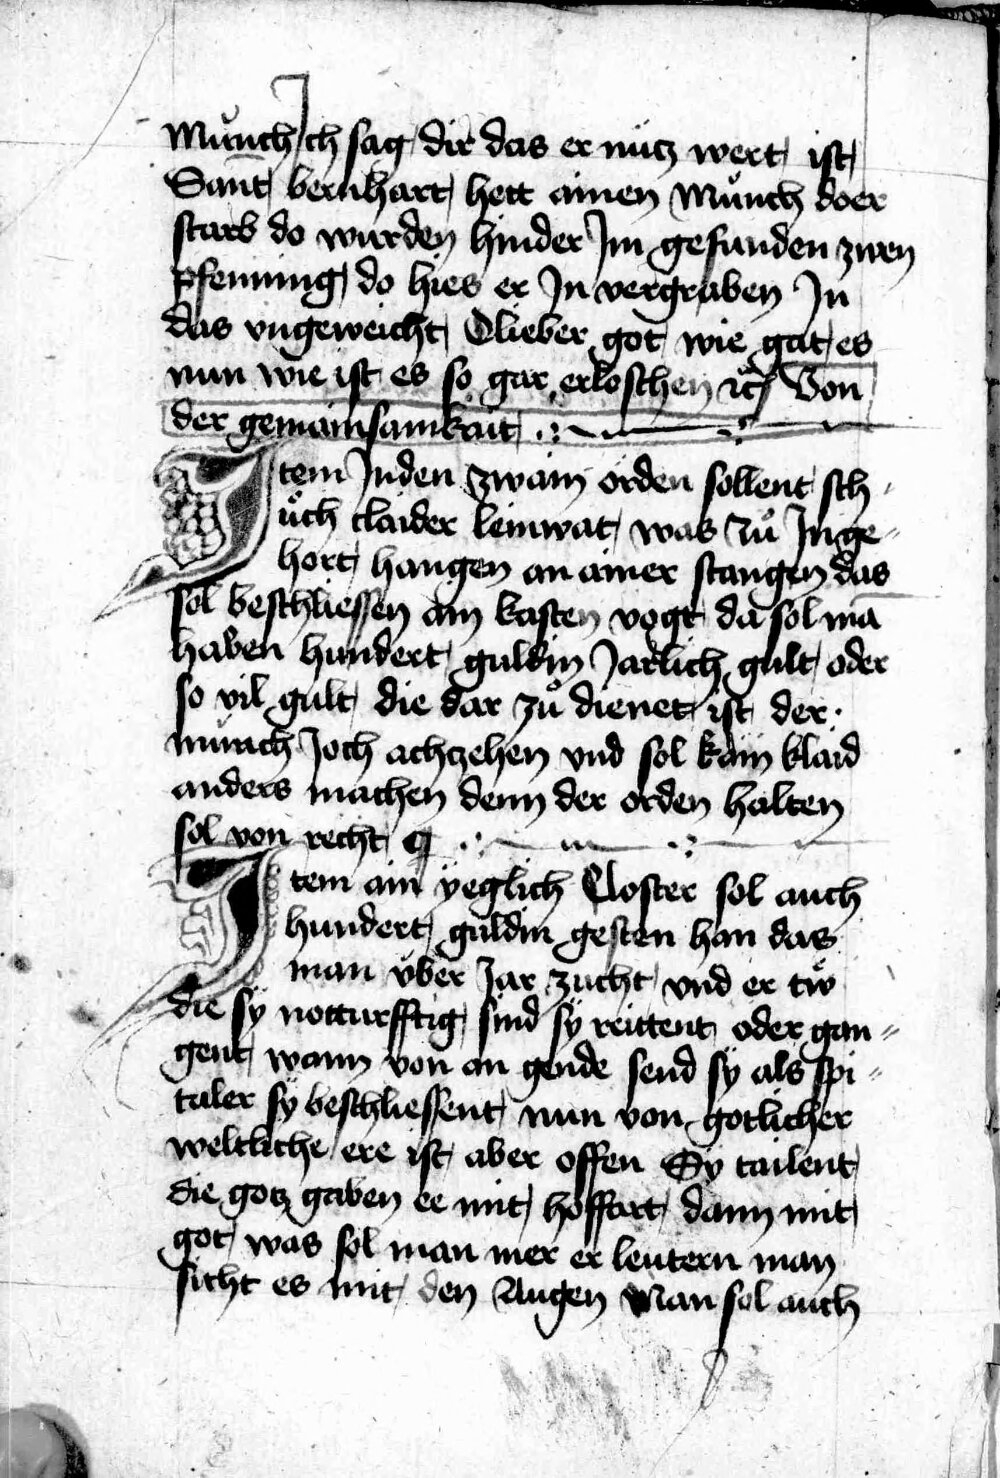 Mu̍nch Jch sag dir das er nütz wert ist
Sant bernhart hett ainen Mu̍nch do er
starb do wurden hinder Jm gefunden zwen
pfenning do hies er Jn vergraben Jn
das vngeweicht O lieber got wie gat es
nun wie ist es so gar erloschen ⁊c̃ Von
der gemainsamkait
Jtem Jn den zwain orden sollent sch
uͦch claider leinwat was zuͦ Jn ge-
hort hangen an ainer stangen das
sol beschliessen ain kasten vogt da sol mā
haben hundert guldin Jarlich gült oder
so vil gült die dar zuͦ dienet ist der
münch Joch achzehen vnd sol kain klaid
anders machen denn der orden halten
sol von recht ¶
Jtem ain yeglich Closter sol auch
hundert guldin gesten han das
man über Jar zucht vnd er tw
die sÿ notturfftig sind sÿ reittent oder gan-
gent wann von an gende send sÿ als spi-
taler sÿ beschliessent nun von gotlicher
weltliche ere ist aber offen Sy tailent
die gotz gaben ee mit hoffart dann mit
got was sol man mer er leutern man
sicht es mit den Augen Man sol auch